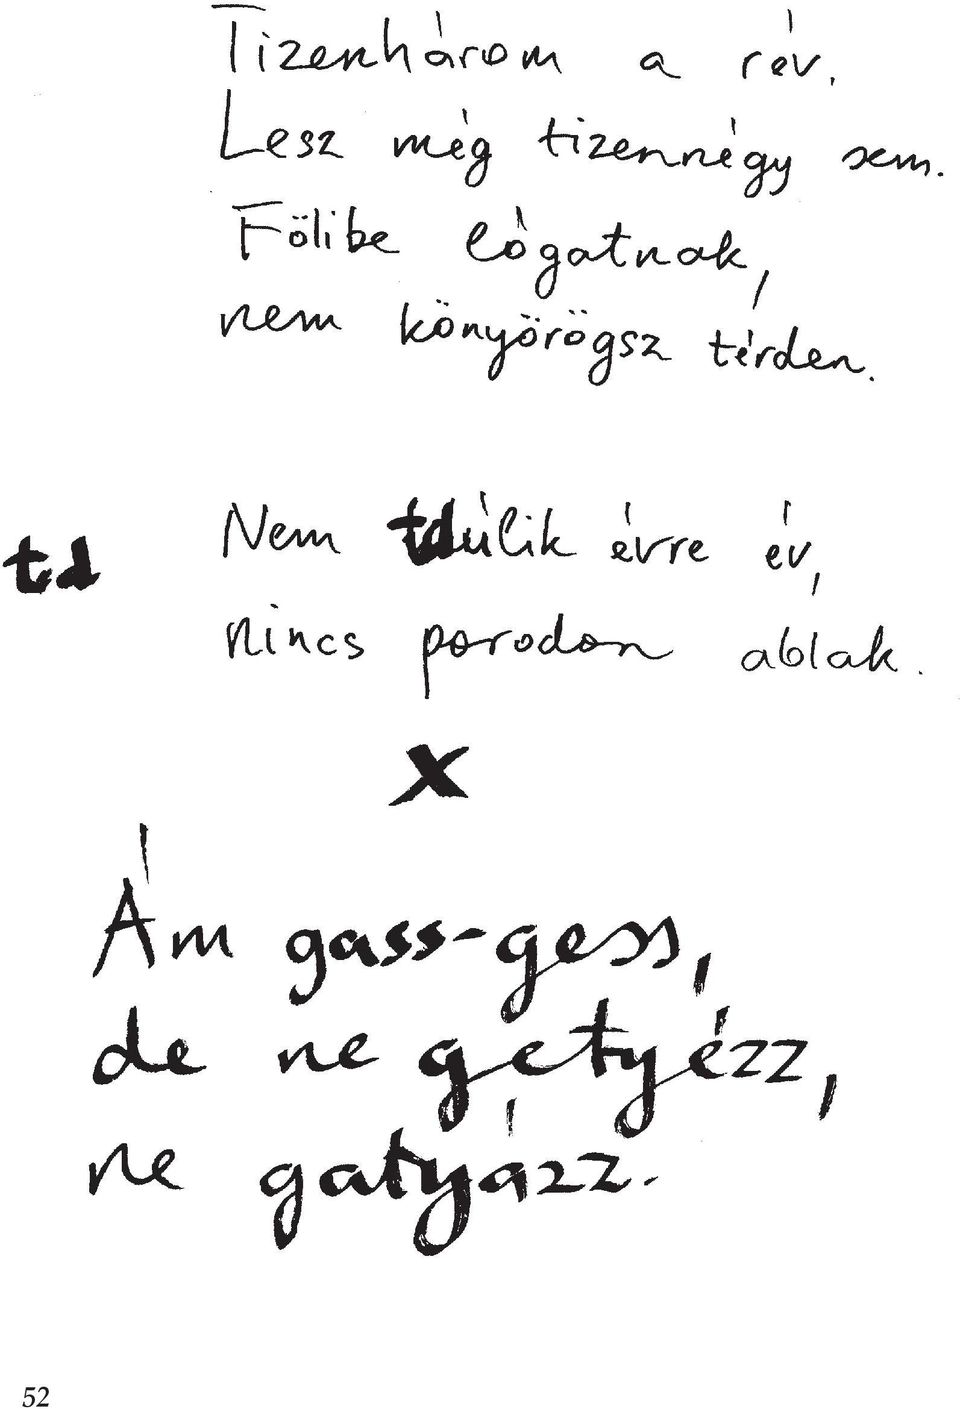 Tizenhárom a rév.
Lesz még tizennégy sem.
Fölibe lógatnak,
nem könyörögsz térden.
td Nem tdúlik évre év,
nincs porodon ablak.
x
Ám gass-gess,
de ne getyézz,
ne gatyázz.
52